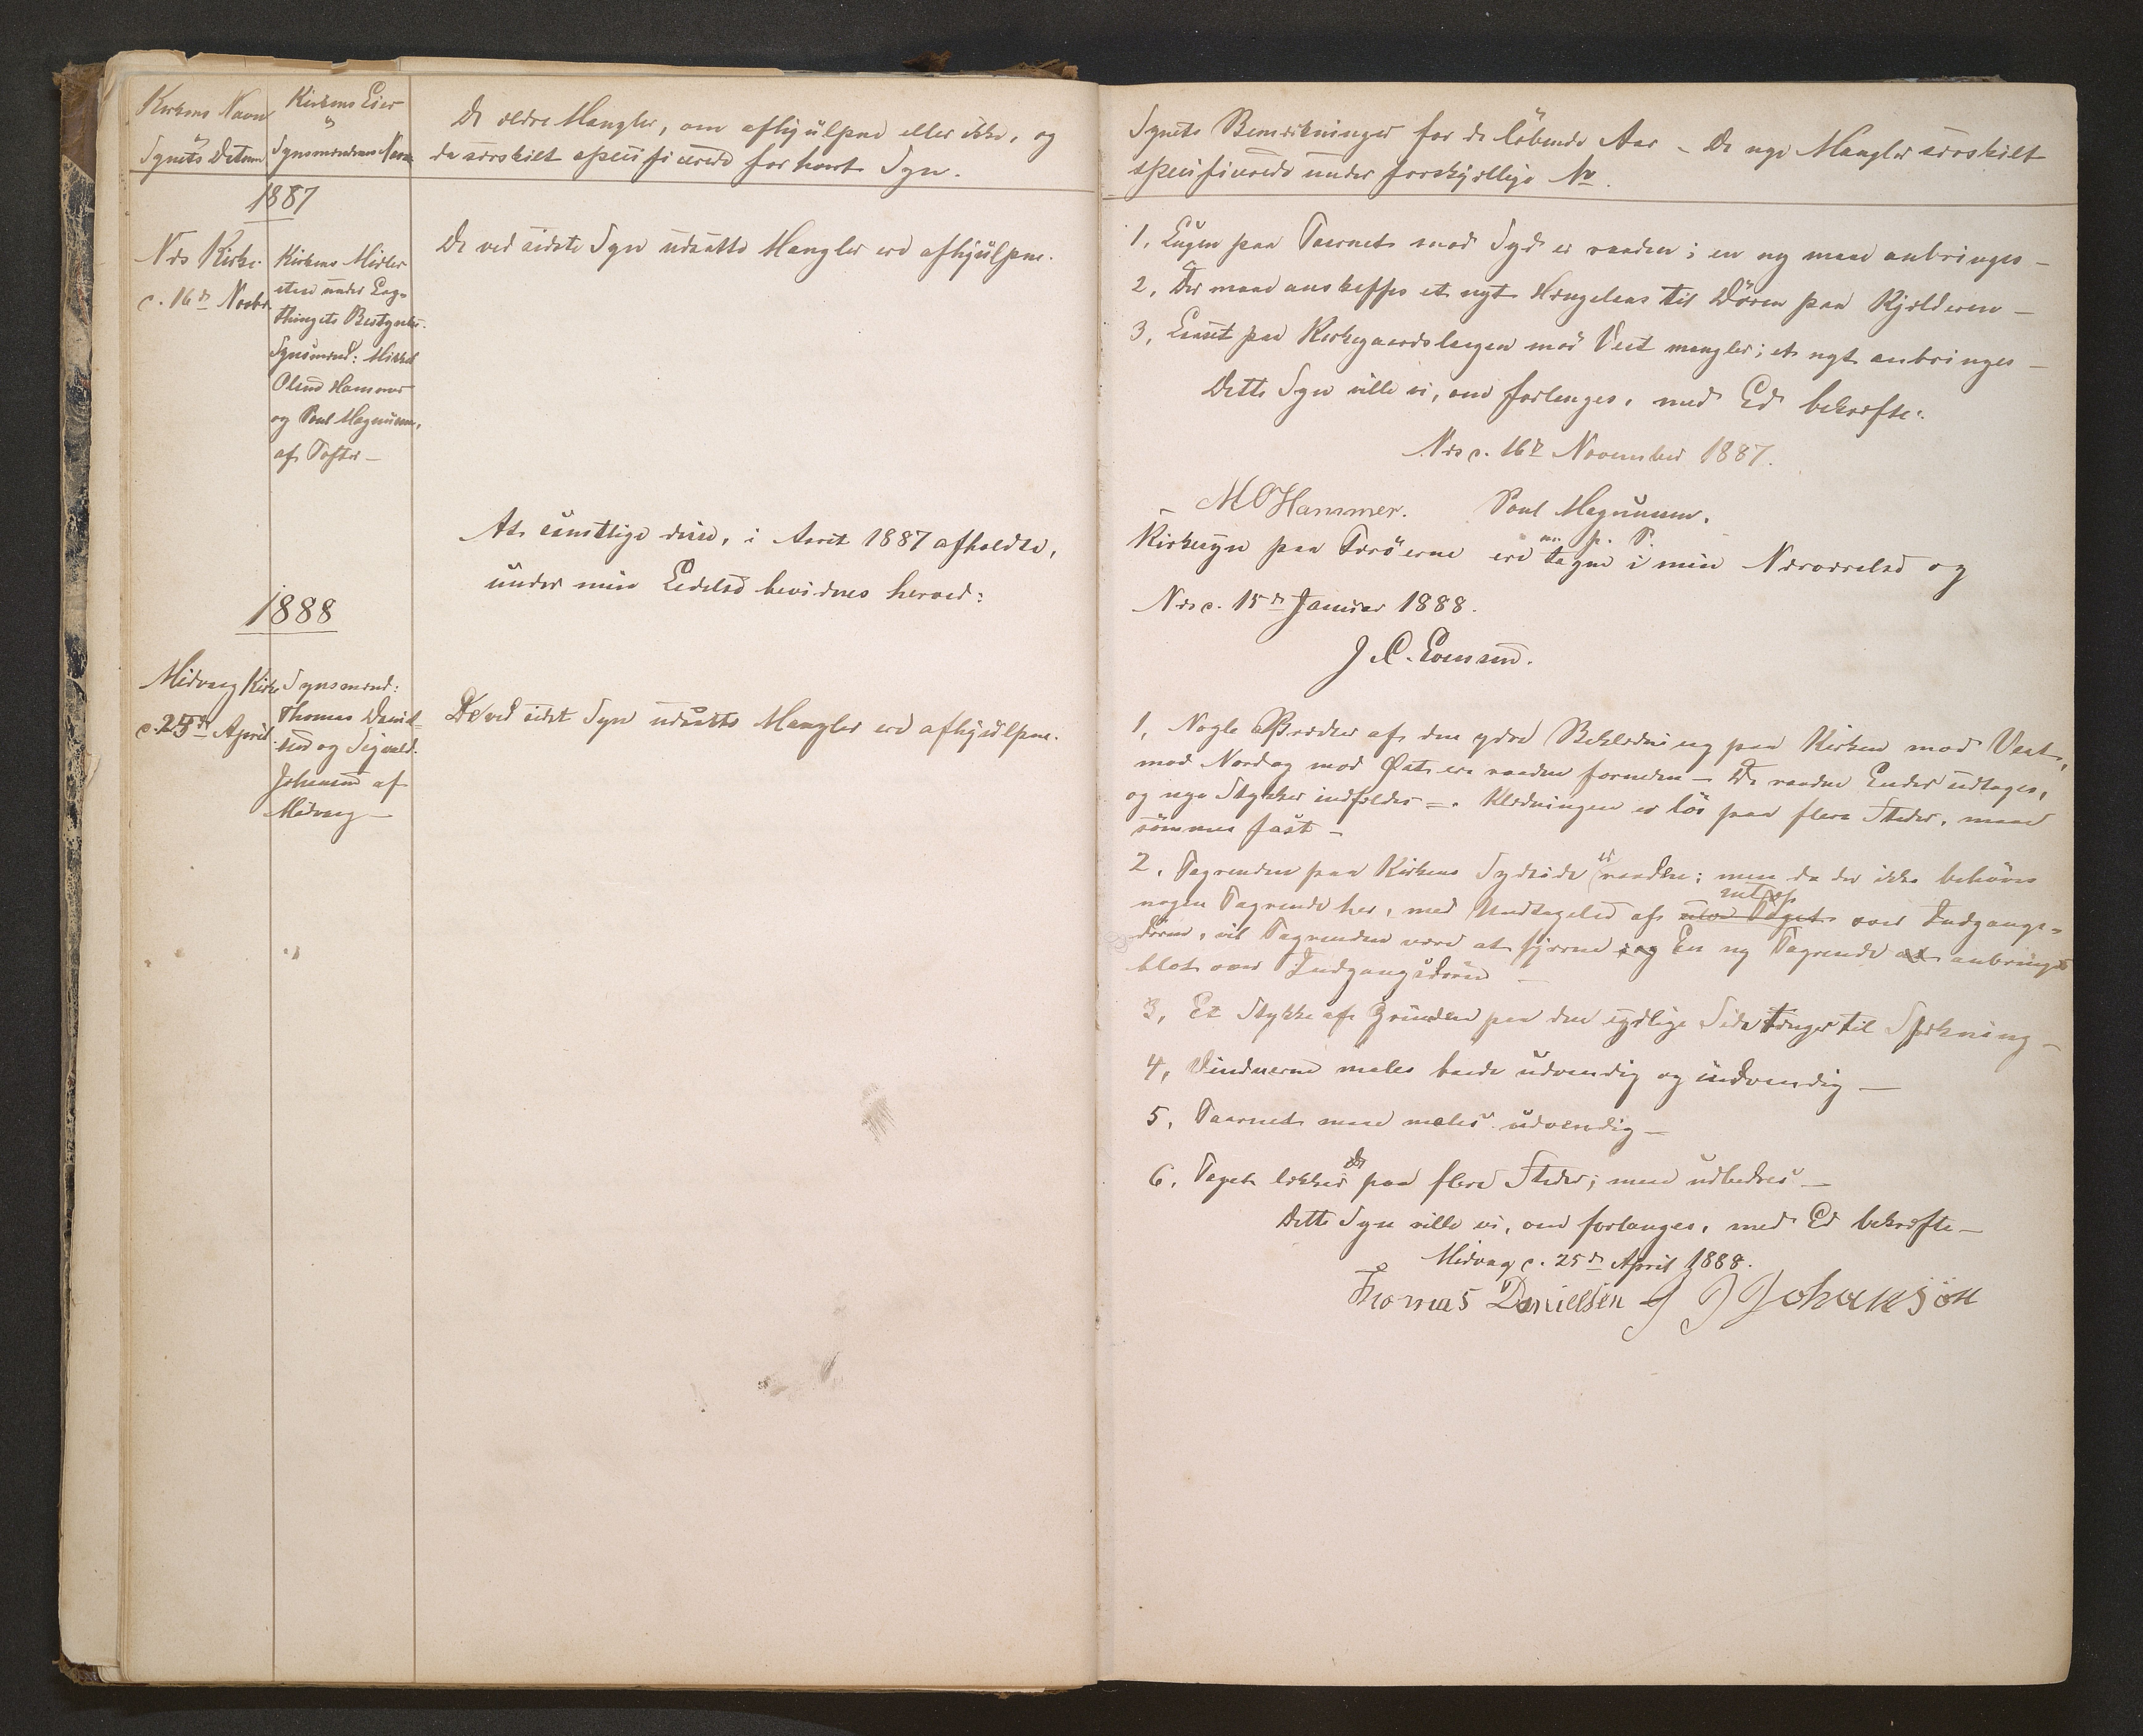 Kirkens Navn
og
Synets Datum
Kirkens Eier
og
Synsmændenes Navn
De ældre Mangler, om afhjülpne eller ikke, og
da særskilt specificerede for hvert Syn.
1887
Næs Kirke
d. 16de Novbr.
Kirkens Midler
staae under Lag-
thingets Bestyrelse.
Synsmænd: Mikkel
Olsen Hammer
og Poul Magnussen,
af Tofter —
De ved sidste Syn udsatte Mangler ere afhjülpne.
At samtlige disse, i Aaret 1887 afholdte,
under min Eedelse bevidnes herved:
1888
Midvaag Kirke
d. 25de April
Synsmænd:
Thomas Daniel-
sen og Sigvald
Johansen af
Midvaag —
De ved sidst Syn udsatte Mangler ere afhjülpne.
Synets Bemærkninger for de löbende Aar – De nye Mangler særskilt
specificerede under forskjellige No.
1, Lugen paa Taarnet mod Syd er raaden; en ny maa anbringes —
2, Der maa anskaffes et nyt Hængelaas til Dören paa Kjælderen —
3, Laaset paa Kirkegaardslaagen mod Vest mangler; et nyt anbringes —
Dette Syn ville vi, om forlanges, med Ed bekræfte.
Næs d. 16de November 1887.
M O Hammer. Poul Magnussen.
m. p. P.
Kirkesyn paa Færöerne ere tagne i min Nærværelse og
Næs d. 15de Januar 1888.
J C. Evensen.
1, Nogle Brædder af den ydre Beklædning paa Kirken mod Vest,
mod Nord og mod Øst ere raadne forneden — De raadne Ender udtages,
og nye Stykker indfældes —. Klædningen er lös paa flere Steder, maa
sömmes fast —
2, Tagrenden paa Kirkens Sydside er raadden; men da der ikke behöves
nogen Tagrende her, med Undtagelse af over Indgangs-
dören, vil Tagrenden være at fjerne og En ny Tagrende at anbringes
blot over Indgangsdören —
3, Et Stykke af Grunden paa den sydlige Side trænger til Spækning —
4, Vinduerne males baade udvendig og indvendig —
5, Taarnet maa males udvendig —
6, Taget lækker paa flere Steder; maa udbedres —
Dette Syn ville vi, om forlanges, med Ed bekræfte —
Midvaag d. 25de April 1888.
Thomas Danielsen S J Johansön